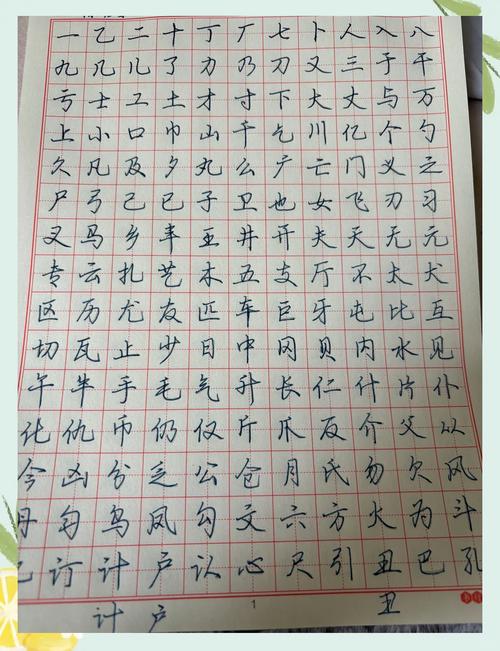 一乙二十丁厂七卜人入八
九几儿了力乃刀又三于干
亏士工土才寸下大丈与万
上小口巾山千乞川亿个勺
久凡及夕丸么广亡门义之
尸弓己已子卫也女飞刃习
叉马乡丰王井开夫天无元
专云扎艺木五支厅不太犬
区历尤友匹车巨牙屯比互
切瓦止少日中冈贝内水见
午牛手毛气升长仁什片仆
化仇币仍仅斤爪反介父从
今凶分乏公仓月氏勿欠风
丹匀乌凤勾文六方火为斗
订计户认心尺引丑巴孔
计户丑
1